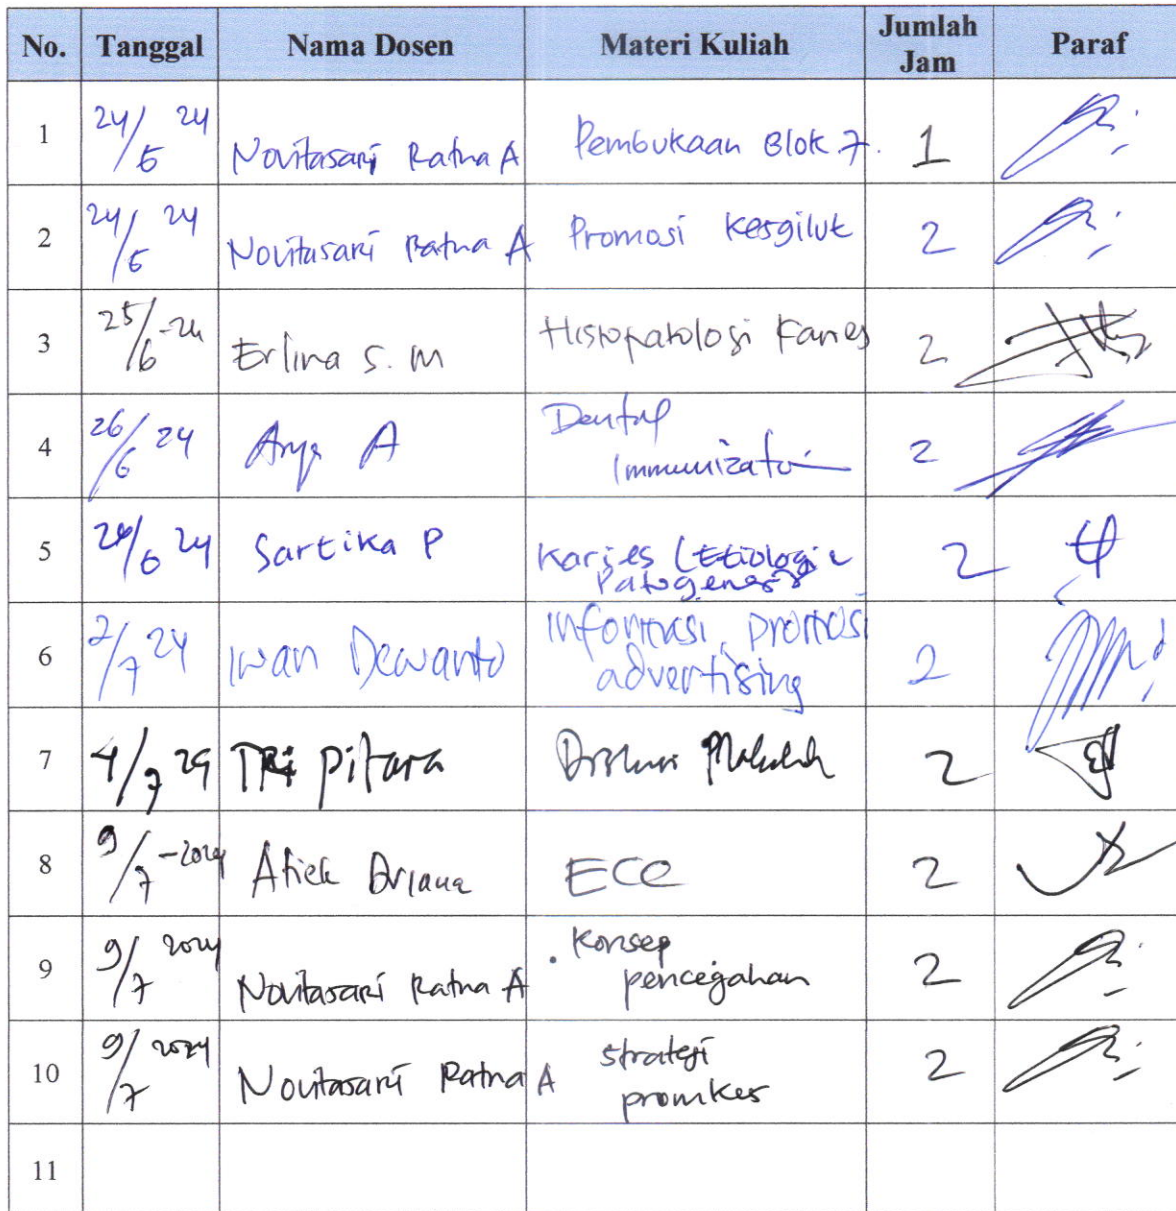 No. Tanggal Nama Dosen Materi Kuliah Jumlah Jam Paraf
1 24/6 24 Novitasari Ratna A Pembukaan Blok 7. 1
2 24/6 24 Novitasari Ratna A Promosi Kesgilut 2
3 25/6-24 Erlina S. M Histopatologi Karies 2
4 26/6 24 A Dental Immunization 2
5 /6 24 Sartika P Karies (Etiologi Patogenesis 2
6 2/7 24 Iwan Dewanto Informasi, promosi advertising 2
7 4/7 24 Tri Pitara Diskusi Makalah 2
8 9/7-2024 Atiek Driana ECC 2
9 9/7 2024 Novitasari Ratna A Konsep pencegahan 2
10 9/7 2024 Novitasari Ratna A strategi promkes 2
11